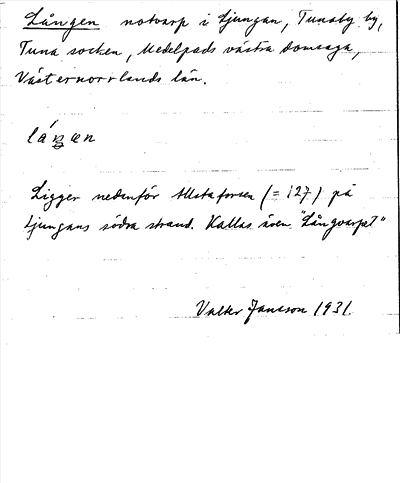 Långan notvarp i Ljungan, Tunaby by,
Tuna socken, Medelpads västra domsaga,
Västernorrlands län.
Ligger nedanför Allstaforsen (= 127) på
Ljungans södra strand. Kallas även "Långvarpet"
Valter Jansson 1931.